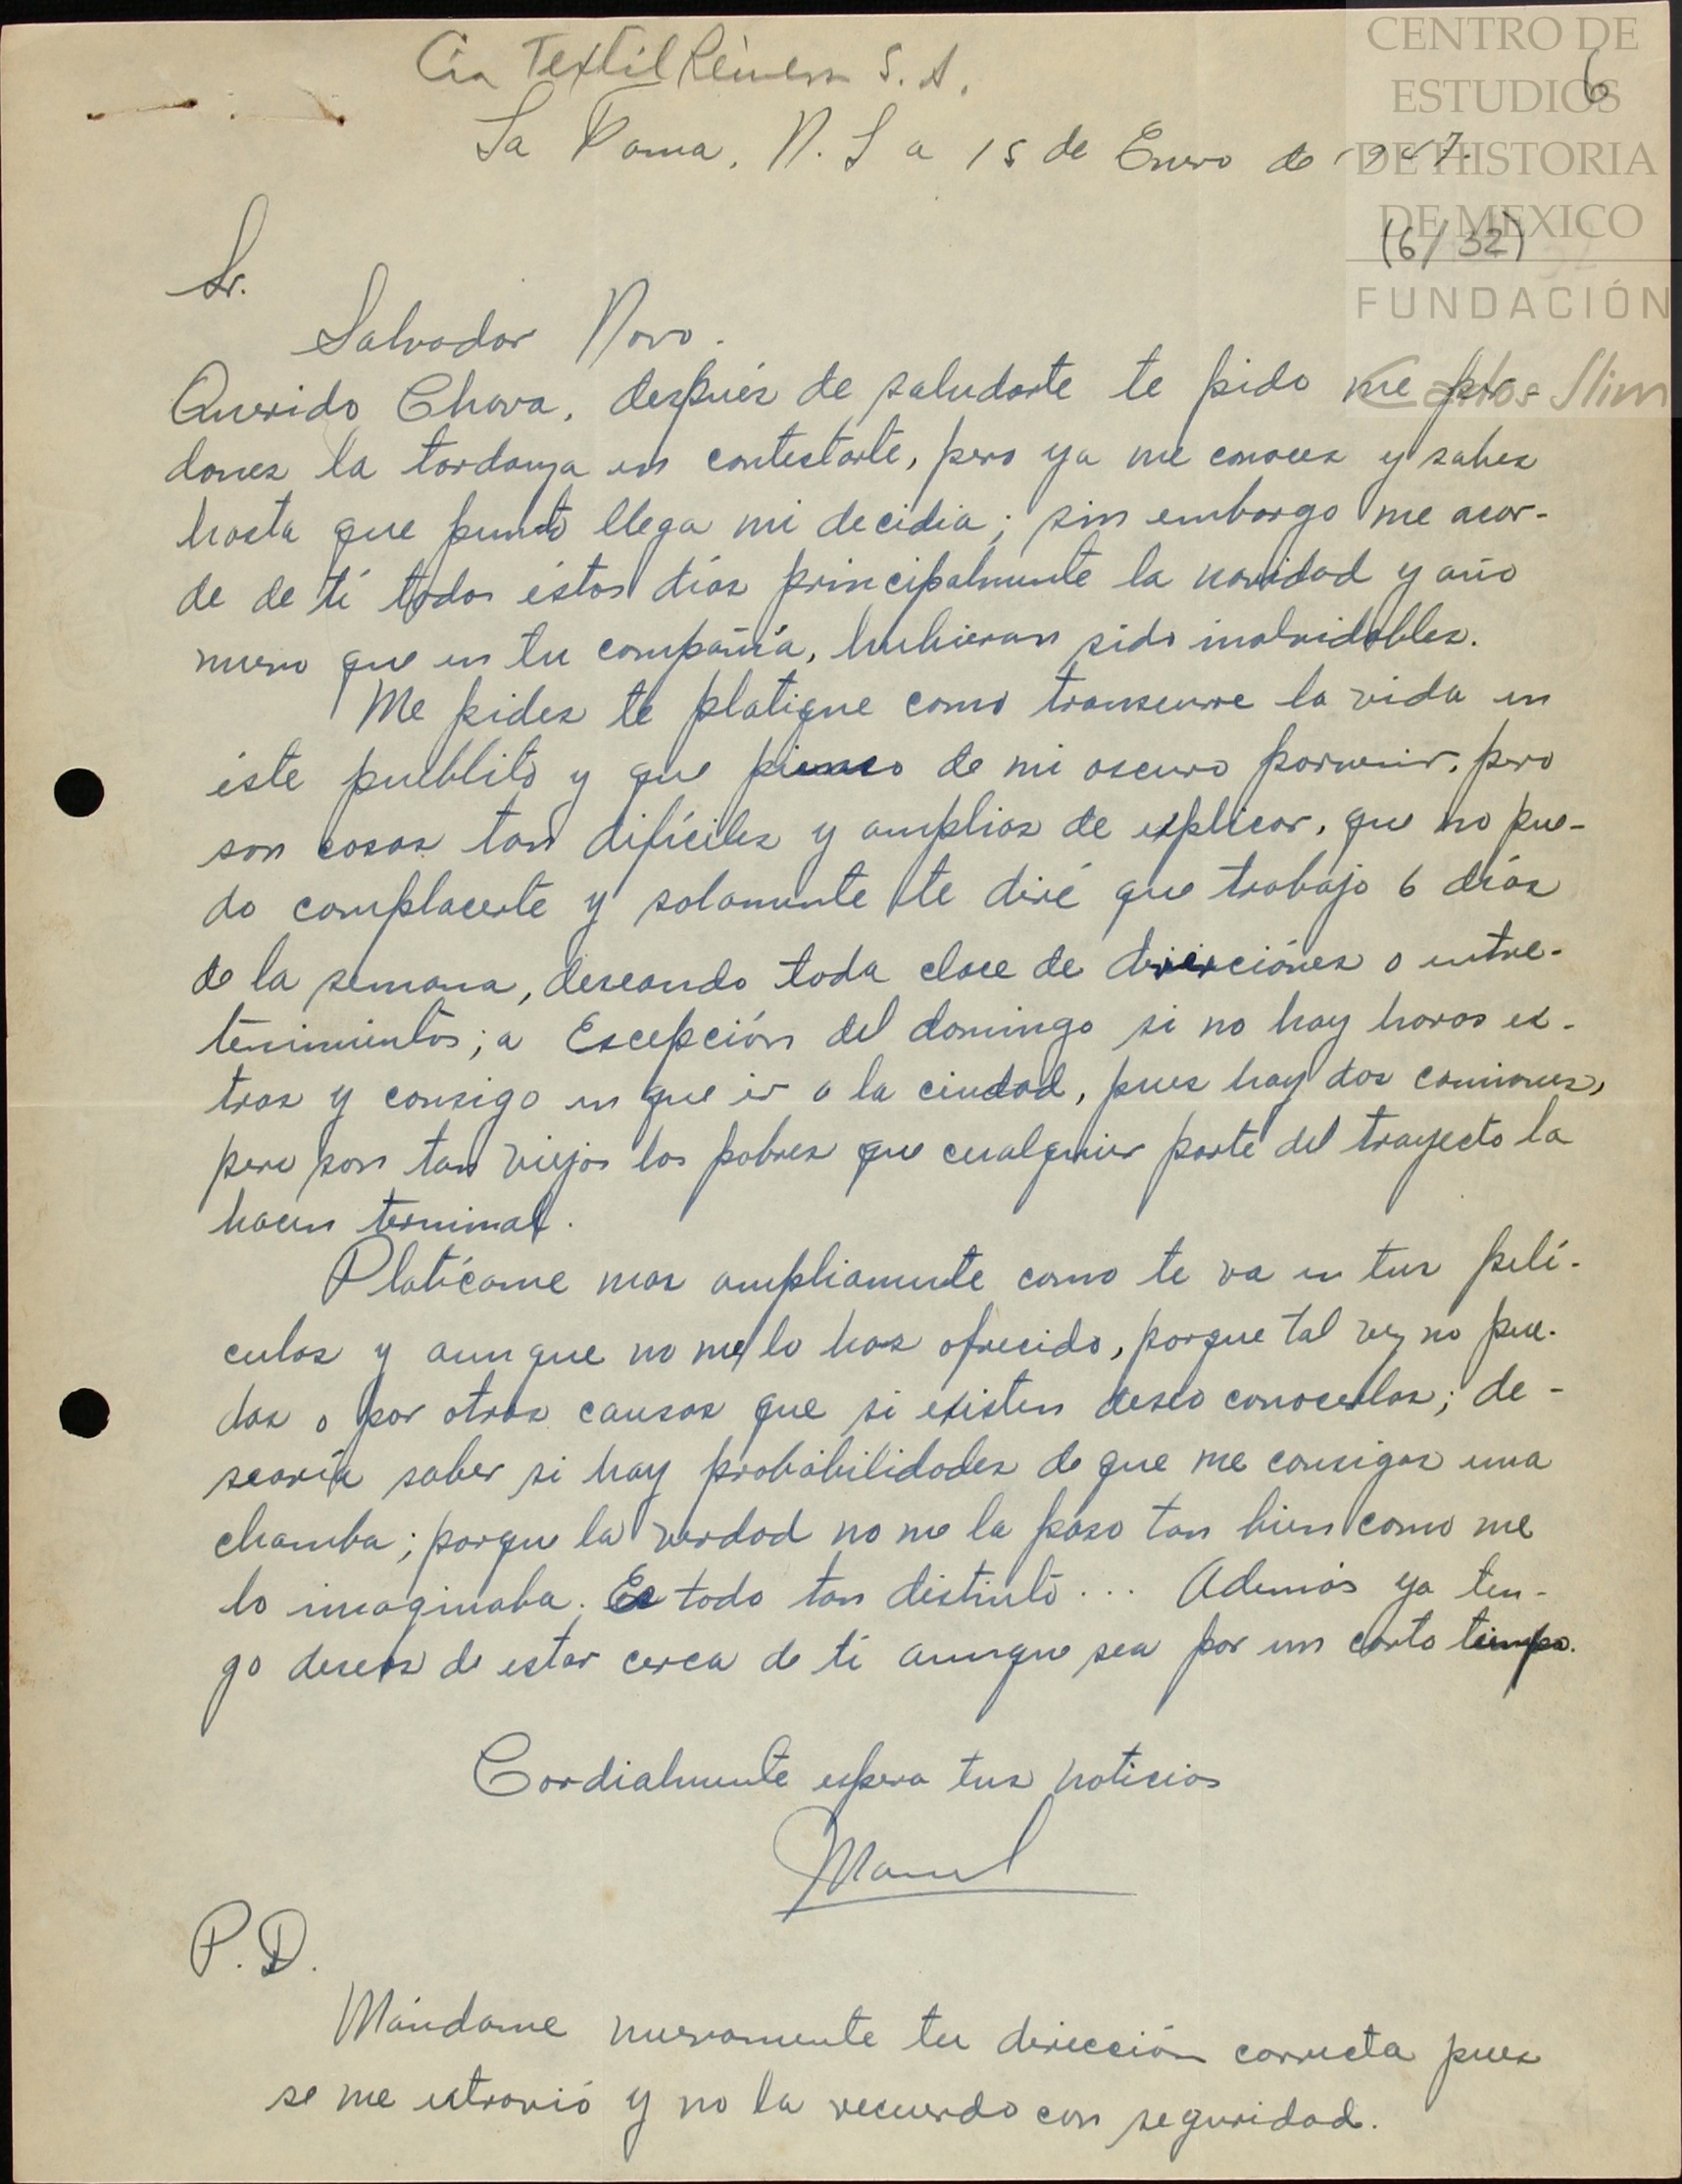 Cia Textil S. A.
6
La Fama, N. L a 15 de Enero de 1947.
(6/32)
CENTRO DE
ESTUDIOS
DE HISTORIA
DE MEXICO
FUNDACIÓN
Carlos Slim
Sr.
Salvador Novo.
Querido Chava, después de saludarte te pido me per-
dones la tardanza en contestarte, pero ya me conoces y sabes
hasta que punto llega mi decidia; sin embargo me acor-
de de tí todos éstos días principalmente la navidad y año
nuevo que en tu compañía, hubieran sido inolvidables.
Me pides te platique como transcurre la vida en
éste pueblito y que pienso de mi oscuro porvenir, pero
son cosas tan difíciles y amplias de esplicar, que no pue-
do complacerte y solamente te diré que trabajo 6 días
de la semana, deseando toda clase de diverciónes o entre-
tenimientos; a Escepción del domingo si no hay horas es-
tras y consigo en que ir a la ciudad, pues hay dos camiones,
pero son tan viejos los pobres que cualquier parte del trayecto la
hacen terminal.
Platícame mas ampliamente como te va en tus pelí-
culas y aunque no me lo has ofrecido, porque tal vez no pue-
das o por otras causas que si existen deseo conocerlas; de-
searía saber si hay probabilidades de que me consigas una
chamba; porque la verdad no me la paso tan bien como me
lo imaginaba. Es todo tan distinto... Además ya ten-
go deseos de estar cerca de tí aunque sea por un corto tiempo.
Cordialmente espera tus noticias
Manuel
P.D.
Mándame nuevamente tu dirección correcta pues
se me estravió y no la recuerdo con seguridad.